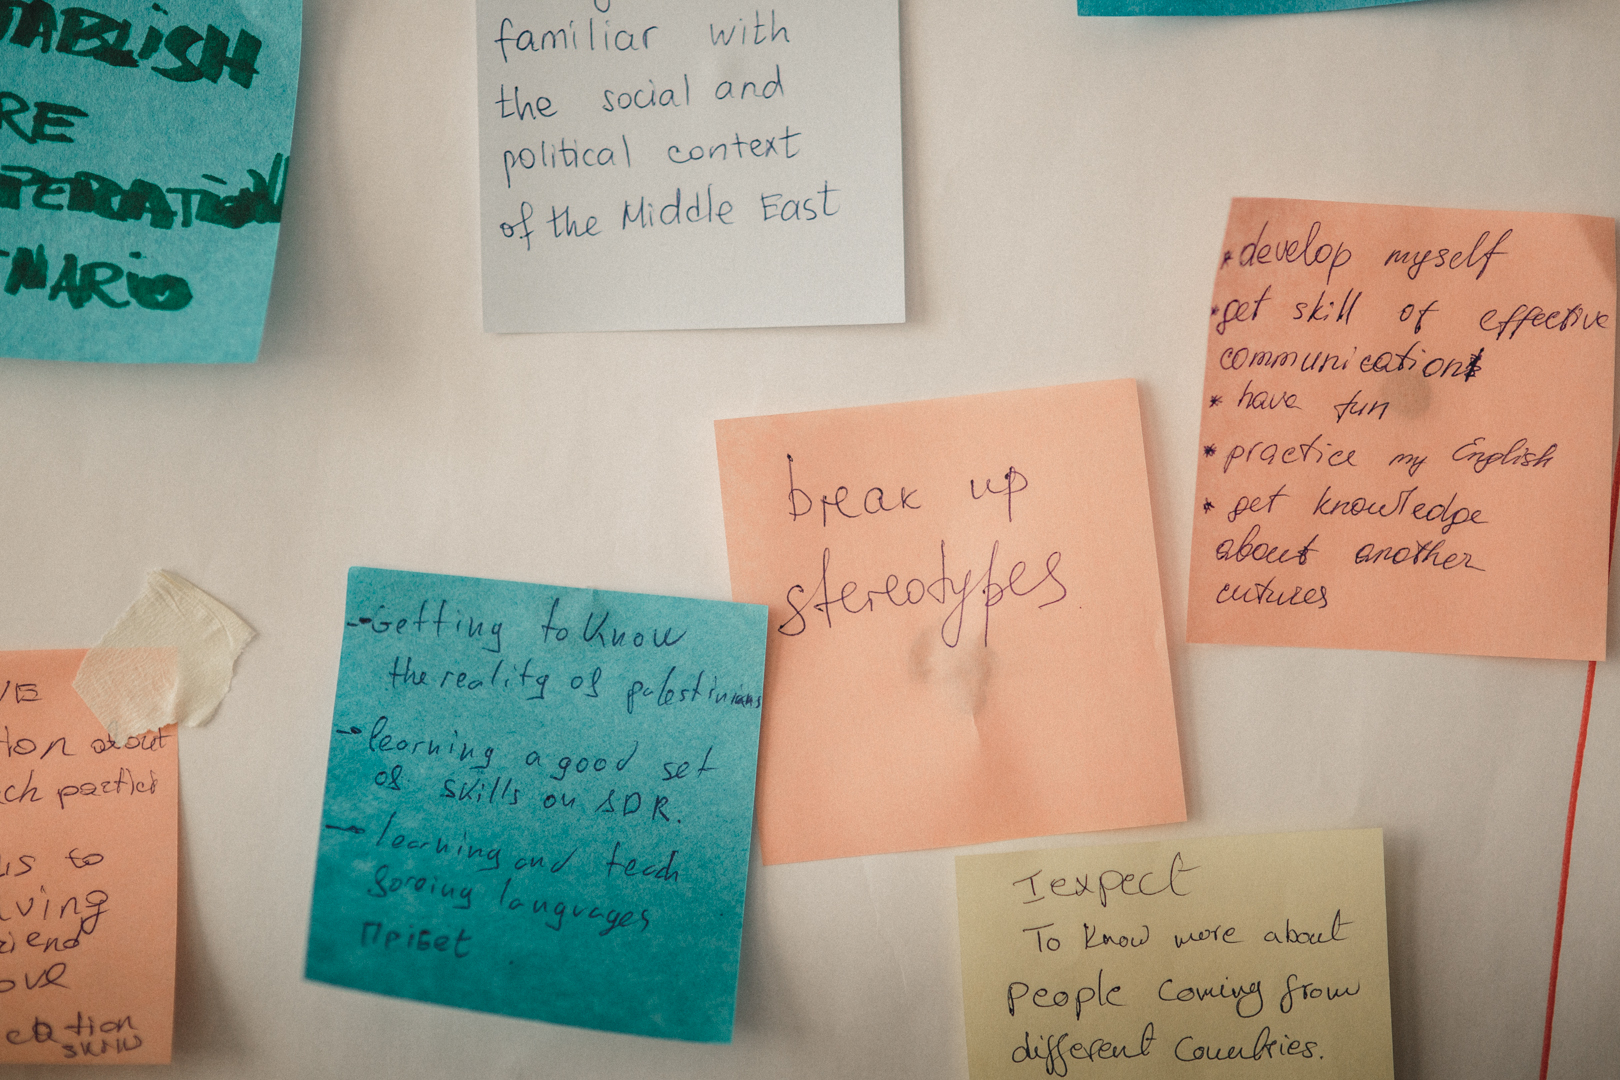 TABLISH
RE
PERATION
NARIO
familiar with
the social and
political context
of the Middle East
*develop myself
*get skill of effective
communication
* have fun
* practice my English
* get knowledge
about another
cutures
break up
stereotypes
-Getting to Know
the reality of palestinians
- learning a good set
of skills on SDR.
- learning and teach
Soreing languages
Прiвет
VE
tion about
ch partici
us to
iving
riend
ove
ation
skills
I expect
To know more about
people coming from
different Countries.